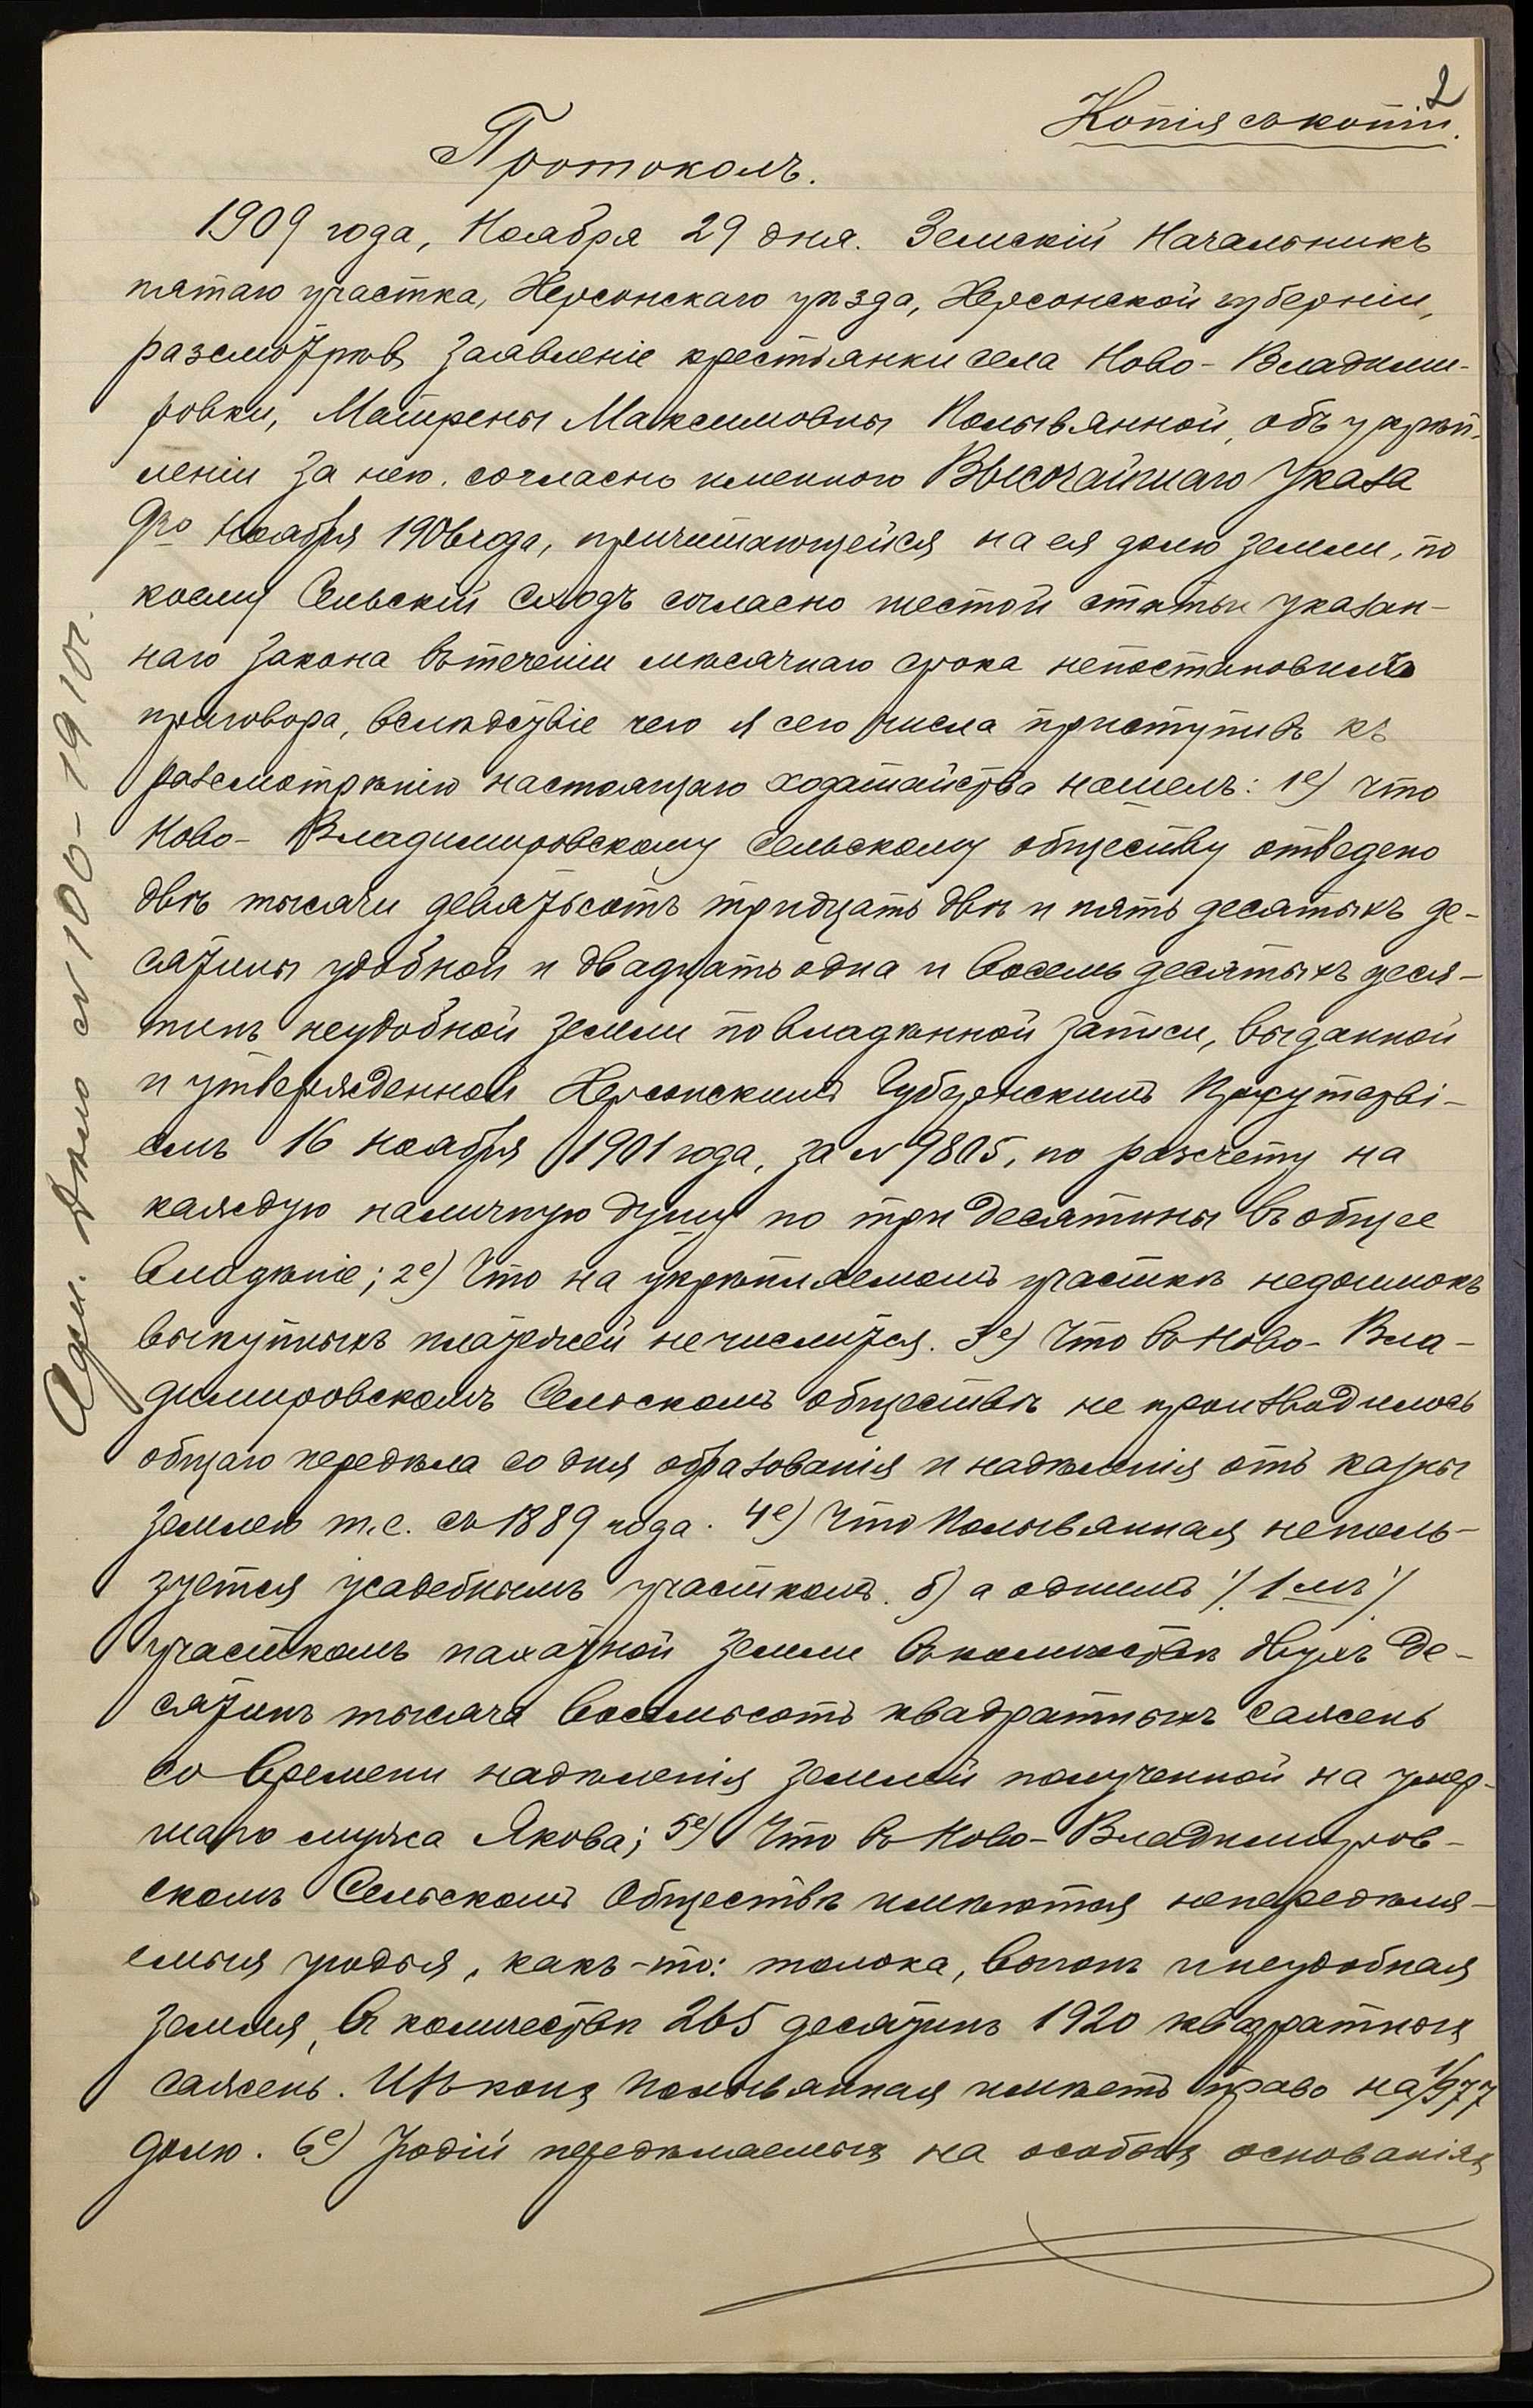 2
Копія съ копіи.
Протоколъ.
1909 года, Ноября 29 дня. Земскій Начальникъ
пятаго участка, Херсонскаго уѣзда, Херсонской губерніи,
разсмотрѣвъ заявленіе крестьянки села Ново-Владими-
ровки, Матрены Максимовны Полывянной, объ укрѣп-
леніи за нею, согласно именного Высочайшаго Указа
9го Ноября 1906 года, причитающейся на ея долю земли, по
коему Сельскій Сходъ согласно шестой статьи указан-
наго закона въ теченіи мѣсячнаго срока непостановилъ
приговора, вслѣдствіе чего я сего числа приступивъ къ
разсмотрѣнію настоящаго ходатайства нашелъ: 1е) Что
Ново-Владимировскому Сельскому обществу отведено
двѣ тысячи девятьсотъ тридцать двѣ и пять десятыхъ де-
сятины удобной и двадцать одна и восемь десятыхъ деся-
тинъ неудобной земли по владѣнной записи, выданной
и утвержденной Херсонскимъ Губернскимъ Присутстві-
емъ 16 ноября 1901 года, за № 9805, по разсчету на
каждую наличную душу по три десятины въ общее
владѣніе; 2е) Что на укрѣпляемомъ участкѣ недоимокъ
выкупныхъ платежей не числится. 3е) Что въ Ново-Вла-
димировскомъ Сельскомъ обществѣ не производилось
общаго передѣла со дня образованія и надѣленія отъ казны
землею т.е. съ 1889 года. 4е) Что Полывянная неполь-
зуется усадебнымъ участкомъ. б) а однимъ /1мъ/
участкомъ пахатной земли въ количествѣ двухъ де-
сятинъ тысяча восемьсотъ квадратныхъ сажень
со времени надѣленія землей полученной на умер-
шаго мужа Якова; 5е) Что въ Ново-Владимиров-
скомъ Сельскомъ Обществѣ имѣются непередѣля-
емыя угодья, какъ-то: толока, выгонъ и неудобная
земля, въ количествѣ 265 десятинъ 1920 квадратныхъ
сажень. Изъ коихъ Полывянная имѣетъ право на 1/977
долю. 6е) Угодій передѣляемыхъ на особыхъ основаніяхъ
Адм. Дѣло № 100-1910г.